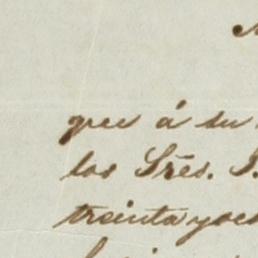 que á su
los Sres. S.
treinta y oc